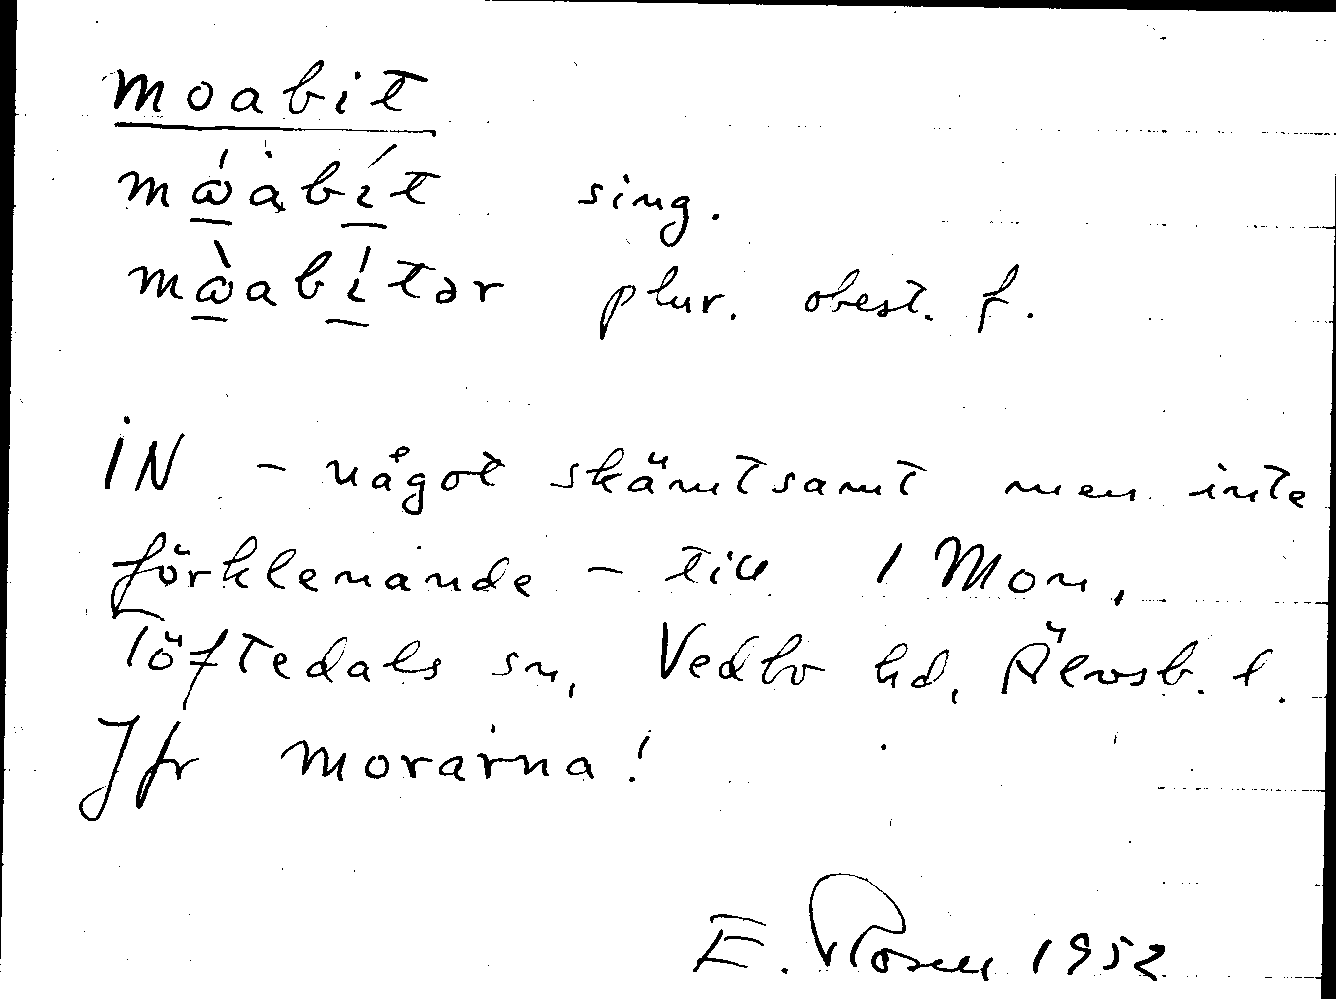 moabit
mώ̲àbí̲t sing.
mὼ̲abí̲tər plur. obest. f.
IN – något skämtsamt men inte
förklenande – till 1 Mon,
Töftedals sn, Vedbo hd, Älvsb. l.
Jfr morarna!
E. Rosell 1952